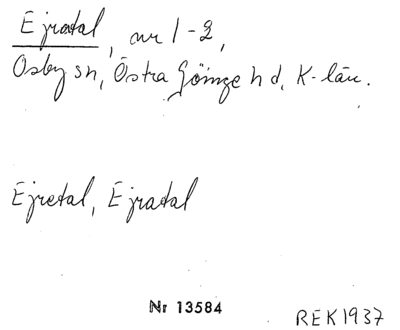 Ejratal, nr 1-2,
Osby sn, Östra Göinge hd, K-län.
Ejretal, Ejratal
Nr 13584
REK1937